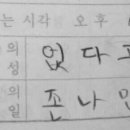 는 시각 오 후
의 없 다 고
성
의 존 나 만
일